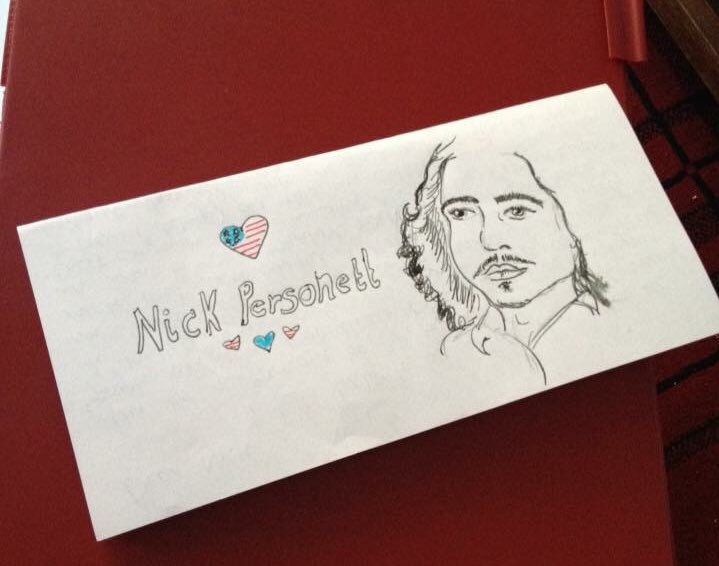 Nick Personett